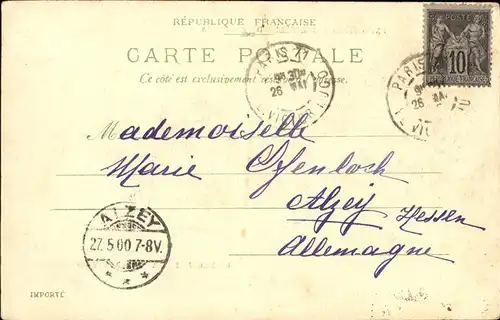 RÉPUBLIQUE FRANÇAISE
CARTE POSTALE
Ce côté est exclusivement réservé à l'adresse.
POSTE
10
PARIS 77
9H 30M
26 MAI 00
PARIS
26 MAI
Mademoiselle
Marie Ofenloch
Alzey Hessen
Allemagne
ALZEY
27.5.00 7-8V.
IMPORTÉ